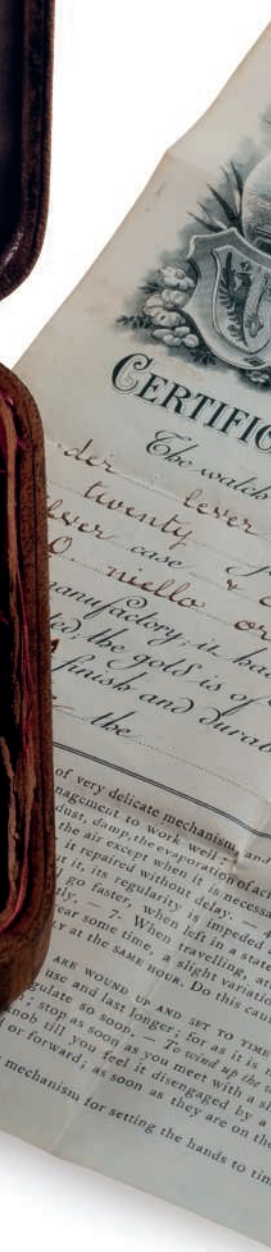 CERTIFIC
The watch
der lever
twenty
lver case & c
O. niello or
anufactory; it ha
ted; the gold is of
finish and durab
the
of very delicate mechanism, and
nagement to work well:
dust, damp, the evaporation of ac
the air except when it is necess
it repaired without delay. — 4
ut it, its regularity is impeded
go faster, when left in a state
tly. — 7. When travelling, at
ear some time, a slight variati
LY at the SAME HOUR. Do this cau
ARE WOUND UP AND SET TO TIME
use and last longer; for as it is
gulate so soon. — To wind up the
; stop as soon as you meet with a sl
nob till you feel it disengaged by a
or forward; as soon as they are on the
mechanism for setting the hands to tim